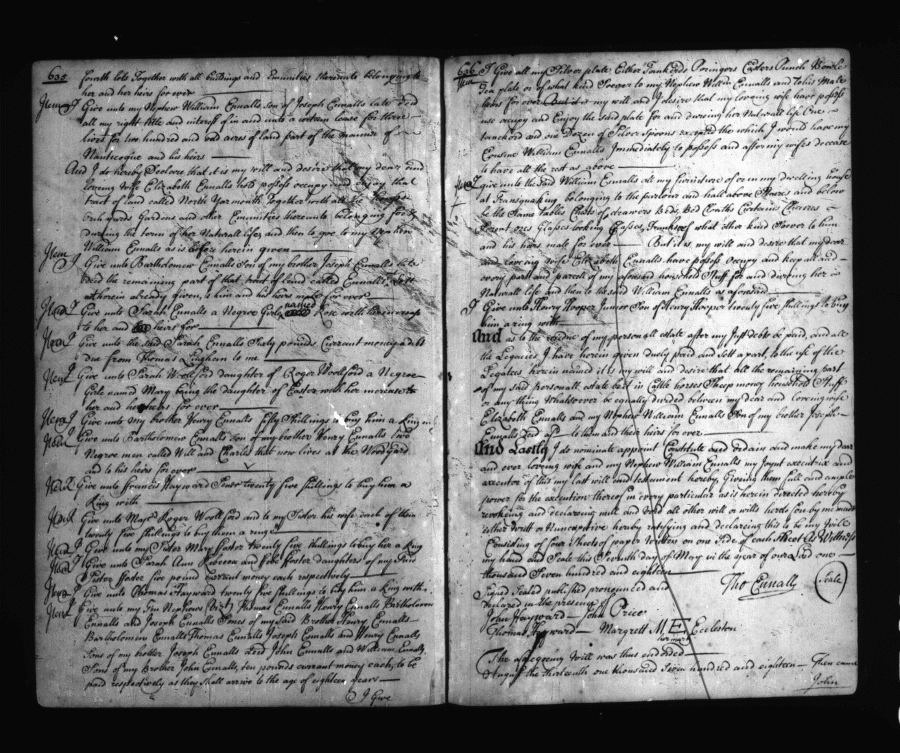 635
fourth lots Together with all buildings and Eminities thereunto belonging to
her and her heirs for ever
Item I Give unto my Nephew William Ennalls son of Joseph Ennalls late decd
all my right title and interest of in and unto a certain lease for three
lives for two hundred and odd acres of land part of the mannor of
Nanticoque and his heirs
And I do hereby Declare that it is my will and desire that my dear and
loveing wife Elizabeth Ennalls hold possess occupy and Enjoy that
tract of land called North Yarmouth Together with all the houses
orchyards Gardens and other Eminities thereunto belonging for &
dureing the term of her Naturall life and then to goe to my Nephew
William Ennalls as is before herein given
Item I Give unto Bartholomew Ennalls Son of my brother Joseph Ennalls late
decd the remaining part of that tract of land called Ennalls
not herein already given to him and his heirs male for ever
Item I Give unto Sarah Ennalls a Negroe Girle named Rose with her increase
to her and heirs for
Item I Give unto the said Sarah Ennalls Sixty pounds Currant money a debt
due from Thomas to me
Item I Give unto Sarah Woolford daughter of Roger Woolford a Negroe
Girle named Mary being the daughter of Easter with her increase to
her and her heirs for ever
Item I Give unto my brother Henry Ennalls fifty Shillings to buy him a Ring
Item I Give unto Bartholomew Ennalls son of my brother Henry Ennalls two
Negroe men called Will and Charles that now lives at the Woodyard
and to his heirs for ever
Item I Give unto Francis Hayward Senr twenty five shillings to buy him a
Ring with
Item I Give unto Majr Roger Woolford and to my Sister his wife each of them
twenty five shillings to buy them a ring
Item I Give unto my Sister Mary foster twenty five shillings to buy her a Ring
Item I Give unto Sarah Ann Rebecca and foster daughters of my said
Sister foster five pound currant money each respectively
Item I Give unto Thomas Hayward twenty five shillings to buy him a Ring with
Item I Give unto my Ten Nephews (vizt) Thomas Ennalls Henry Ennalls Bartholomew
Ennalls and Joseph Ennalls Sones of my said Brother Henry Ennalls
Bartholomew Ennalls Thomas Ennalls Joseph Ennalls and Henry Ennalls
Sons of my brother Joseph Ennalls decd John Ennalls and William Ennalls
Sons of my Brother John Ennalls, ten pounds currant money each, to be
paid respectively as they shall arrive to the age of eighteen years
I Give
636
Item I Give all my Silver plate Either Tankards Poringers Casters Punch Bowle
Tea plate or of what kind soever to my Nephew Willm Ennalls and to his Male
heirs for ever But it is my will and desire that my loveing wife have possess
use occupy and Enjoy the said plate for and dureing her Naturall life One
tanckard and six Dozen of Silver spoons excepted the which I would have my
Cousine William Ennalls Immediately to possess and after my wifes decease
to have all the rest as above
Item I give unto the said William Ennalls all my furniture of or in my dwelling house
at Transquaking belonging to the parlour and hall above Stares and below
be the Same tables Chests of drawers beds, Bed Cloaths Curtains Chaires
Glasses looking Glasses, Trunks of what other kind soever to him
and his heirs male for ever But it is my will and desire that my dear
and loveing wife Elizabeth Ennalls have possess Occupy and keep all and
every part and parcell of my aforesaid household Stuff for and dureing her
Naturall life and then to the said William Ennalls as aforesaid
I Give unto Henry Hooper Junior Son of Henry Hooper twenty five shillings to buy
him a ring with
And as to the residue of my personall estate after my Just debts be paid, and all
the Legacies I have herein given duely paid and sett a part, to the use of the
Legatees herein named it is my will and desire that all the remaining part
of my said personall estate be it in Cattle horses Sheep money household Stuff
or any thing Whatsoever be equally divided between my Dear and loveing wife
Elizabeth Ennalls and my Nephew William Ennalls Son of my brother Joseph
Ennalls decd to them and their heirs for ever
And Lastly I do nominate appoint Constitute and ordain and make my dear
and ever loveing wife and my Nephew William Ennalls my Joynt executrix and
executor of this my last will and testament hereby Giveing them full and ample
power for the execution thereof in every particular as is herein directed hereby
revokeing and declareing null and void all other will or wills heretofore by me made
either Writt or Nuncupative hereby ratifying and declareing this to be my Will
Consisting of four Sheets of paper written on one Side of each Sheet As Wittness
my hand and Seale this Seventh day of May in the year of our Lord one
thousand Seven hundred and eighteen
Signed Sealed published pronounced and
declared in the presence of
Tho Ennalls (Seale)
John Hayward John Price
Thomas Hayward Margrett M E Eccleston
her mark
The aforegoing Will was thus endorsed
August the thirteenth one thousand Seven hundred and eighteen Then came
John